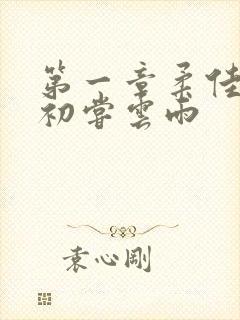 第一章柔佳
初嘗雲雨
袁心剛